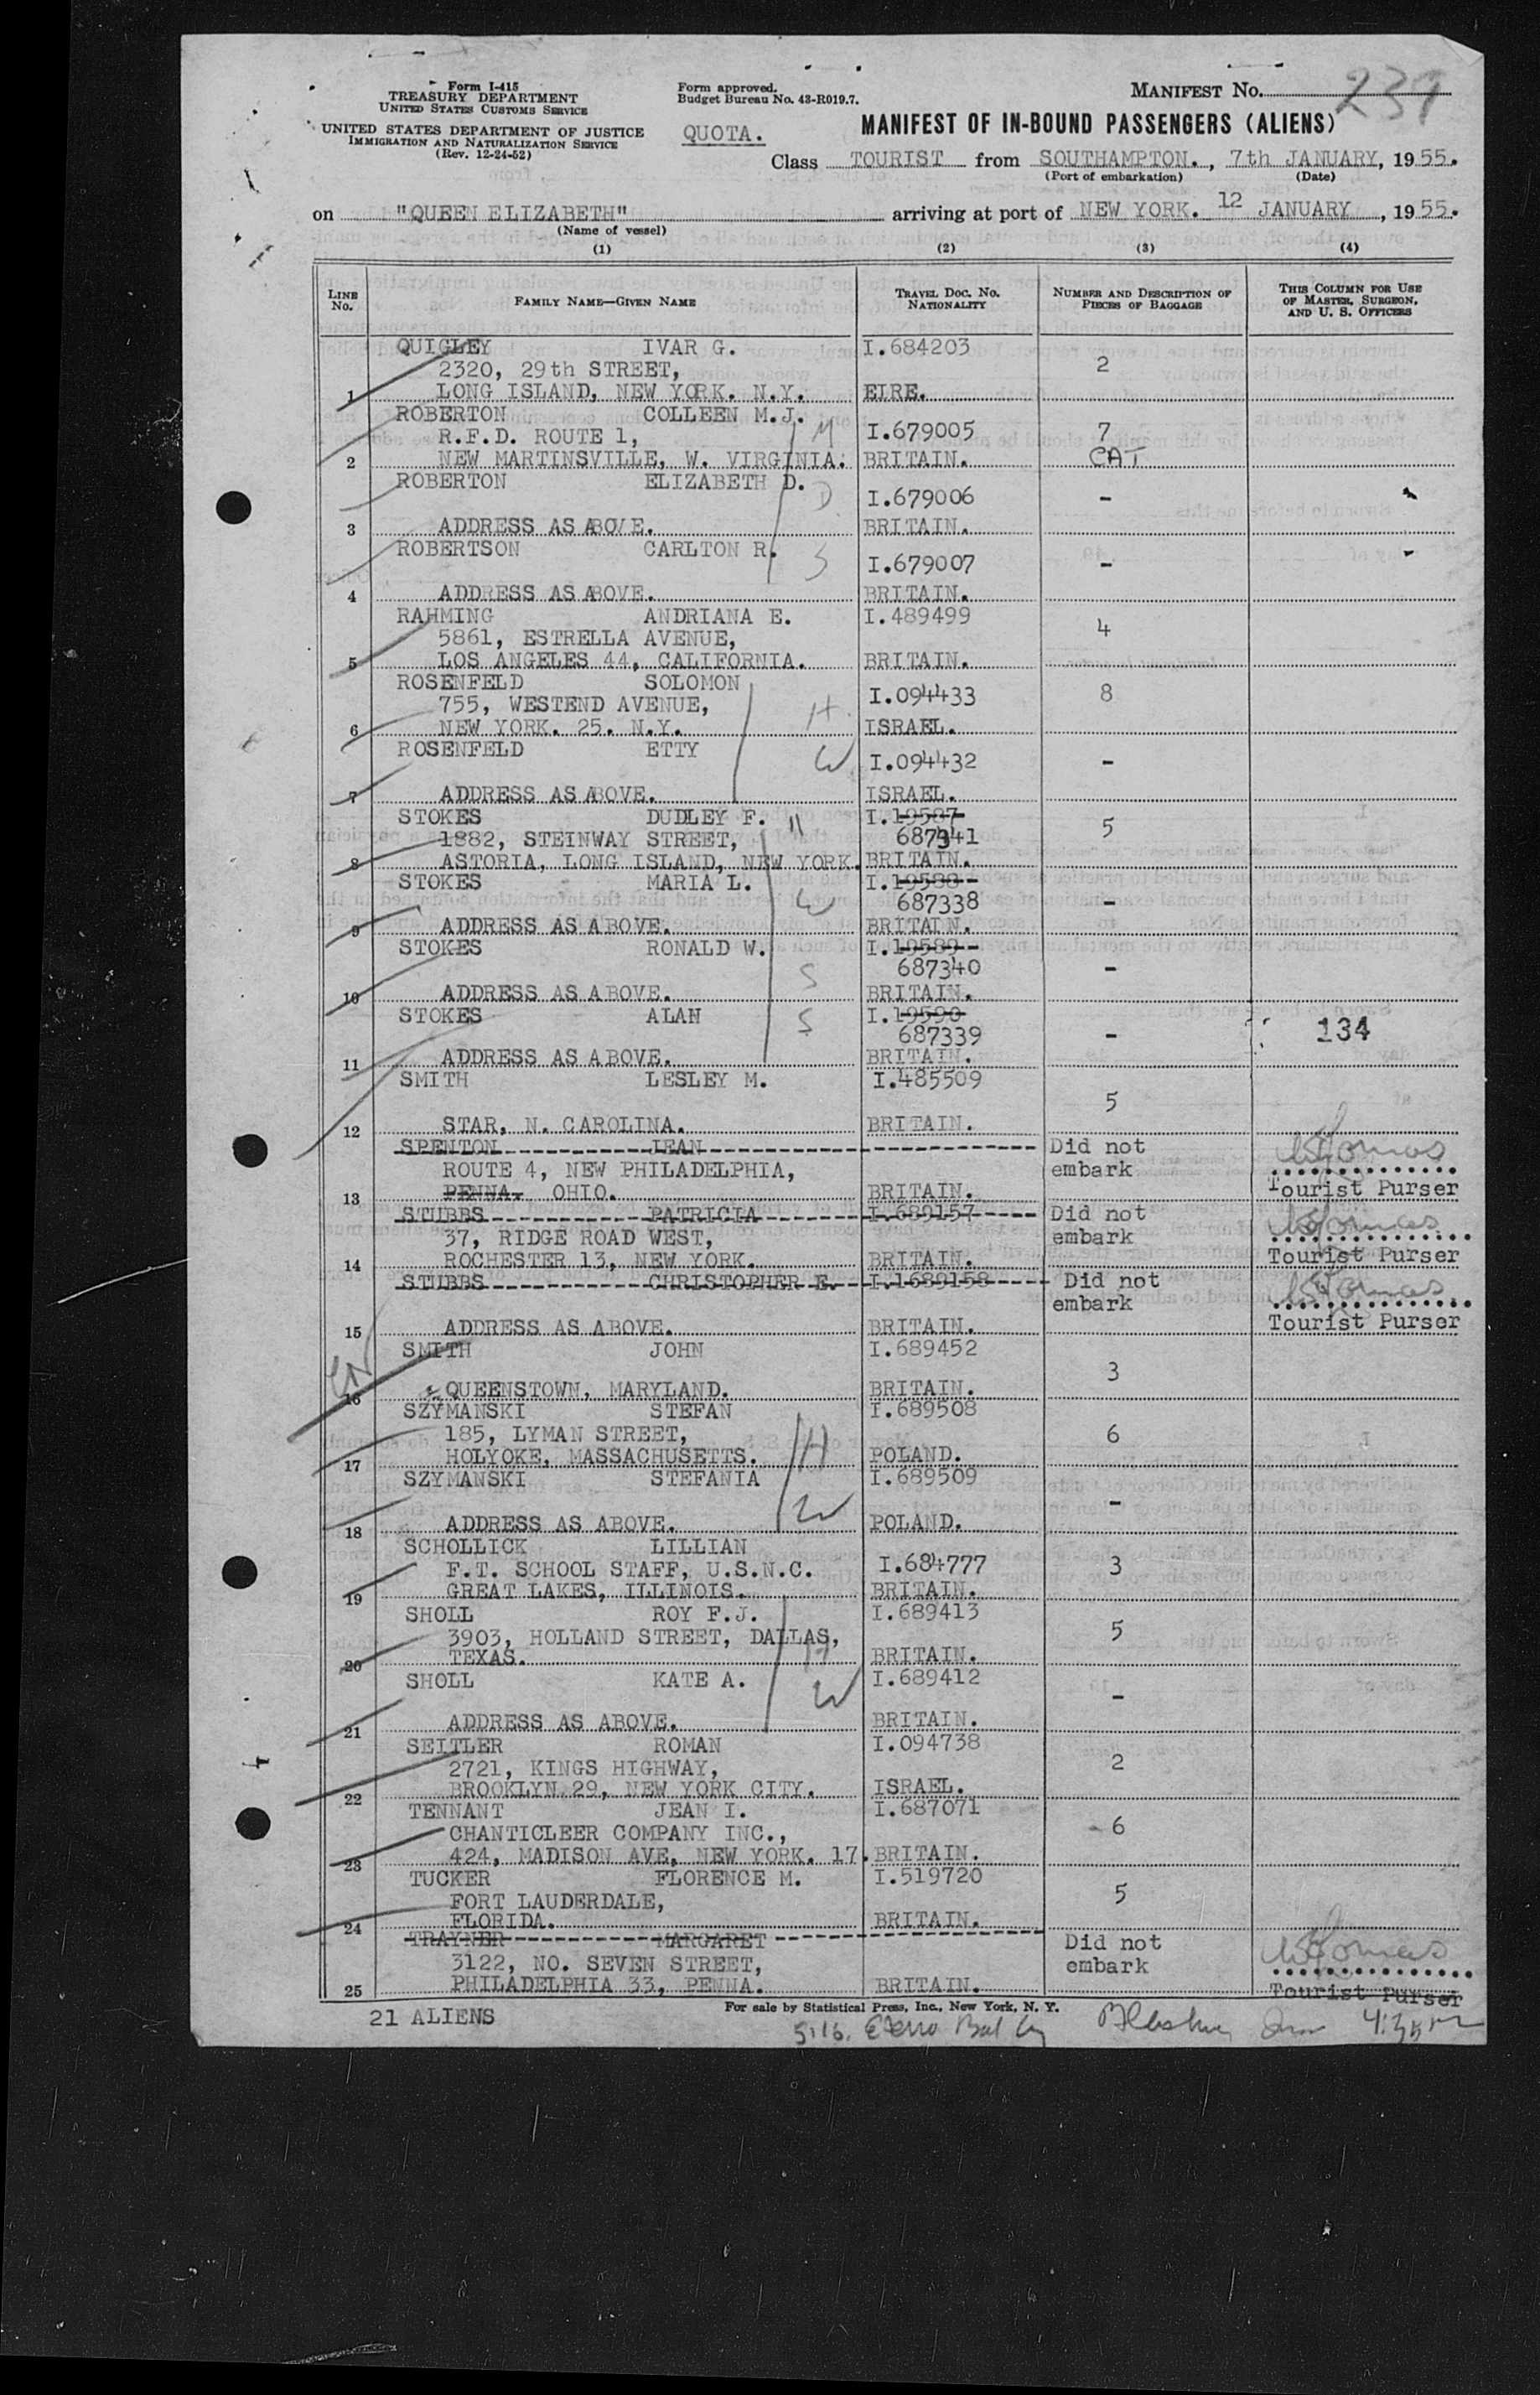 Form I-415
TREASURY DEPARTMENT
UNITED STATES CUSTOMS SERVICE
UNITED STATES DEPARTMENT OF JUSTICE
IMMIGRATION AND NATURALIZATION SERVICE
(Rev. 12-24-52)
Form approved.
Budget Bureau No. 43-R019.7.
QUOTA.
MANIFEST NO. 231
MANIFEST OF IN-BOUND PASSENGERS (ALIENS)
Class TOURIST from SOUTHAMPTON., 7th JANUARY, 1955.
(Port of embarkation) (Date)
on "QUEEN ELIZABETH" arriving at port of NEW YORK. 12 JANUARY, 1955.
(Name of vessel)
(1) (2) (3) (4)
LINE NO. FAMILY NAME—GIVEN NAME TRAVEL DOC. NO. NATIONALITY NUMBER AND DESCRIPTION OF PIECES OF BAGGAGE THIS COLUMN FOR USE OF MASTER, SURGEON, AND U. S. OFFICERS
QUIGLEY IVAR G. I.684203
2320, 29th STREET, 2
1 LONG ISLAND, NEW YORK. N.Y. EIRE.
ROBERTON COLLEEN M.J.
R.F.D. ROUTE 1, M I.679005 7
2 NEW MARTINSVILLE, W. VIRGINIA. BRITAIN. CAT
ROBERTON ELIZABETH D.
D I.679006 -
3 ADDRESS AS ABOVE. BRITAIN.
ROBERTSON CARLTON R.
S I.679007 -
4 ADDRESS AS ABOVE. BRITAIN.
RAHMING ANDRIANA E. I.489499
5861, ESTRELLA AVENUE, 4
5 LOS ANGELES 44, CALIFORNIA. BRITAIN.
ROSENFELD SOLOMON
755, WESTEND AVENUE, H. I.094433 8
6 NEW YORK. 25. N.Y. ISRAEL.
ROSENFELD ETTY
W I.094432 -
7 ADDRESS AS ABOVE. ISRAEL.
STOKES DUDLEY F. H I.19587
1882, STEINWAY STREET, 687341 5
8 ASTORIA, LONG ISLAND, NEW YORK. BRITAIN.
STOKES MARIA L. I.19588
W 687338 -
9 ADDRESS AS ABOVE. BRITAIN.
STOKES RONALD W. I.19589
S 687340 -
10 ADDRESS AS ABOVE. BRITAIN.
STOKES ALAN S I.19590
687339 - 134
11 ADDRESS AS ABOVE. BRITAIN.
SMITH LESLEY M. I.485509
5
12 STAR, N. CAROLINA. BRITAIN.
SPENTON JEAN Did not
ROUTE 4, NEW PHILADELPHIA, embark
13 PENNA. OHIO. BRITAIN. Tourist Purser
STUBBS PATRICIA I.689157 Did not
37, RIDGE ROAD WEST, embark
14 ROCHESTER 13, NEW YORK. BRITAIN. Tourist Purser
STUBBS CHRISTOPHER E. I.1689158 Did not
embark
15 ADDRESS AS ABOVE. BRITAIN. Tourist Purser
SMITH JOHN I.689452
3
16 QUEENSTOWN, MARYLAND. BRITAIN.
SZYMANSKI STEFAN I.689508
185, LYMAN STREET, H 6
17 HOLYOKE, MASSACHUSETTS. POLAND.
SZYMANSKI STEFANIA I.689509
W -
18 ADDRESS AS ABOVE. POLAND.
SCHOLLICK LILLIAN
F.T. SCHOOL STAFF, U.S.N.C. I.684777 3
19 GREAT LAKES, ILLINOIS. BRITAIN.
SHOLL ROY F.J. I.689413
3903, HOLLAND STREET, DALLAS, H 5
20 TEXAS. BRITAIN.
SHOLL KATE A. I.689412
W -
21 ADDRESS AS ABOVE. BRITAIN.
SEITLER ROMAN I.094738
2721, KINGS HIGHWAY, 2
22 BROOKLYN 29, NEW YORK CITY. ISRAEL.
TENNANT JEAN I. I.687071
CHANTICLEER COMPANY INC., 6
23 424, MADISON AVE, NEW YORK. 17. BRITAIN.
TUCKER FLORENCE M. I.519720
FORT LAUDERDALE, 5
24 FLORIDA. BRITAIN.
TRAYNER MARGARET Did not
3122, NO. SEVEN STREET, embark
25 PHILADELPHIA 33, PENNA. BRITAIN. Tourist Purser
21 ALIENS
For sale by Statistical Press, Inc., New York, N. Y.